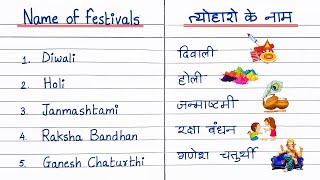 Name of Festivals
1. Diwali
2. Holi
3. Janmashtami
4. Raksha Bandhan
5. Ganesh Chaturthi
त्योहारो के नाम
दिवाली
होली
जन्माष्टमी
रक्षा बंधन
गणेश चतुर्थी